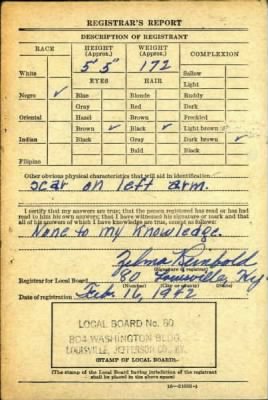 REGISTRAR'S REPORT
DESCRIPTION OF REGISTRANT
RACE HEIGHT (Approx.) WEIGHT (Approx.) COMPLEXION
White 5' 5" 172 Sallow
EYES HAIR Light
Negro ✓ Blue Blonde Ruddy
Gray Red Dark
Oriental Hazel Brown Freckled
Brown ✓ Black ✓ Light brown
Indian Black Gray Dark brown ✓
Bald Black
Filipino
Other obvious physical characteristics that will aid in identification
scar on left arm.
I certify that my answers are true; that the person registered has read or has had
read to him his own answers; that I have witnessed his signature or mark and that
all of his answers of which I have knowledge are true, except as follows:
None to my knowledge.
Zelma Reinbold
(Signature of registrar)
Registrar for Local Board 80 Louisville, Ky.
(Number) (City or county) (State)
Date of registration Feb. 16, 1942
LOCAL BOARD No. 80
804 WASHINGTON BLDG.
LOUISVILLE, JEFFERSON CO., KY.
(STAMP OF LOCAL BOARD)
(The stamp of the Local Board having jurisdiction of the registrant
shall be placed in the above space.)